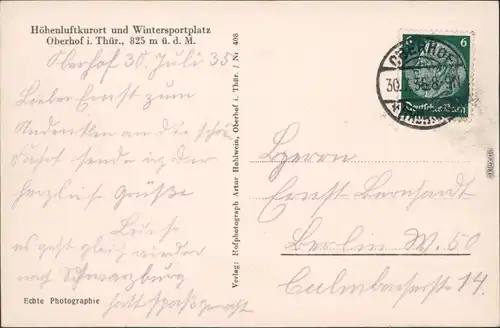 Höhenluftkurort und Wintersportplatz
Oberhof i. Thür., 825 m ü. d. M.
Oberhof 30. Juli 35
Lieber Ernst zum
Andenken an die schöne
Fahrt sende ich dir
herzliche Grüße
Luise
es geht gleich wieder
nach Schwarzburg
hatt spaß gemacht
Echte Photographie
Verlag: Hofphotograph Artur Hohlwein, Oberhof i. Thür. / Nr. 408
6
Deutsches Reich
OBERHOF
Herrn
Ernst Bernhardt
Berlin W. 50
Culmbacherstr 14.